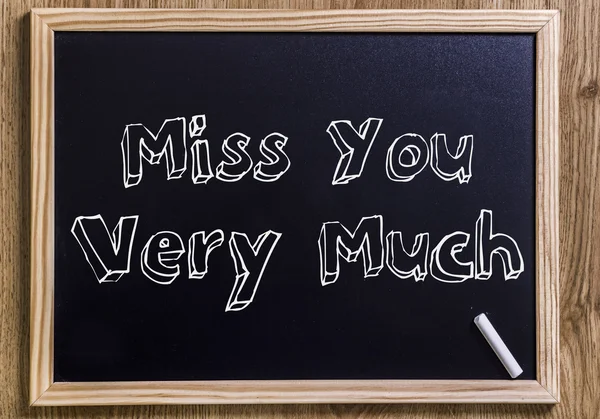 Miss You
Very Much